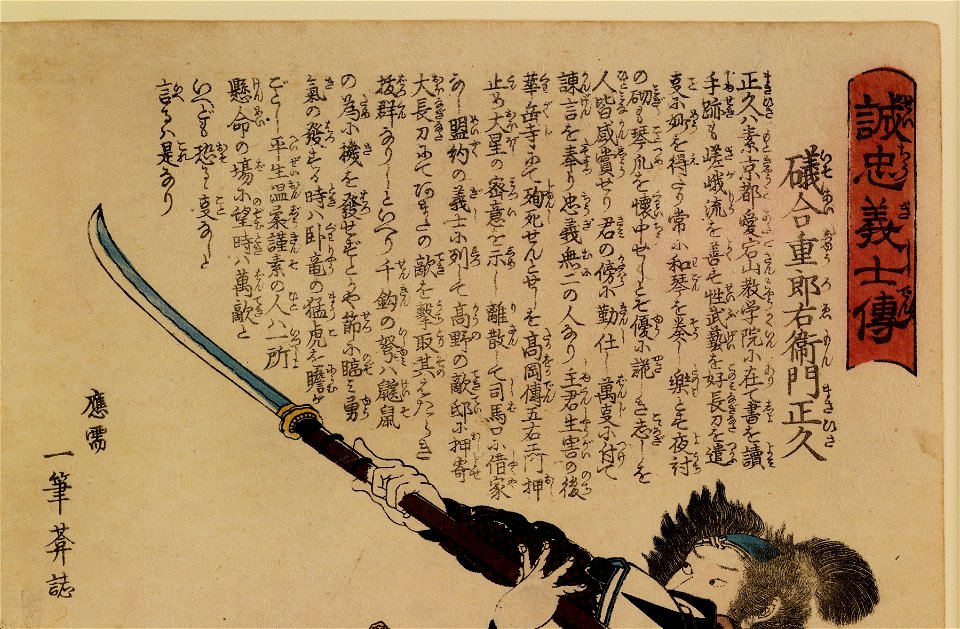 誠忠義士傳
礒合重郎右衛門正久
正久ハ素京都愛宕山教学院に在て書を讀
手跡も嵯峨流を善せ性武藝を好長刀を遣
事に妙を得たり常に和琴を奏し樂とせ夜討
の砌も琴爪を懐中せしとぞ優に き志しを
人皆感賞せり君の傍に勤仕し萬事に付て
諫言を奉り忠義無二の人なり主君生害の後
華岳寺にて殉死せんとせしを髙岡傳五右衛門押
止め大星の密意を示し離散して司馬口に借家
なし盟約の義士に列して髙野の敵邸に押寄
大長刀にてあまたの敵を撃取其はたらき
抜群なりしといへり千鈞の弩ハ鼷鼠
の為に機を發せずとかや節に臨ミ勇
氣の發する時ハ卧竜の猛虎を瞻が
ごとし平生温柔謹素の人ハ一所
懸命の場に望時ハ萬敵と
いへども恐るゝ事なしと
言るハ是なり
應需
一筆葊誌